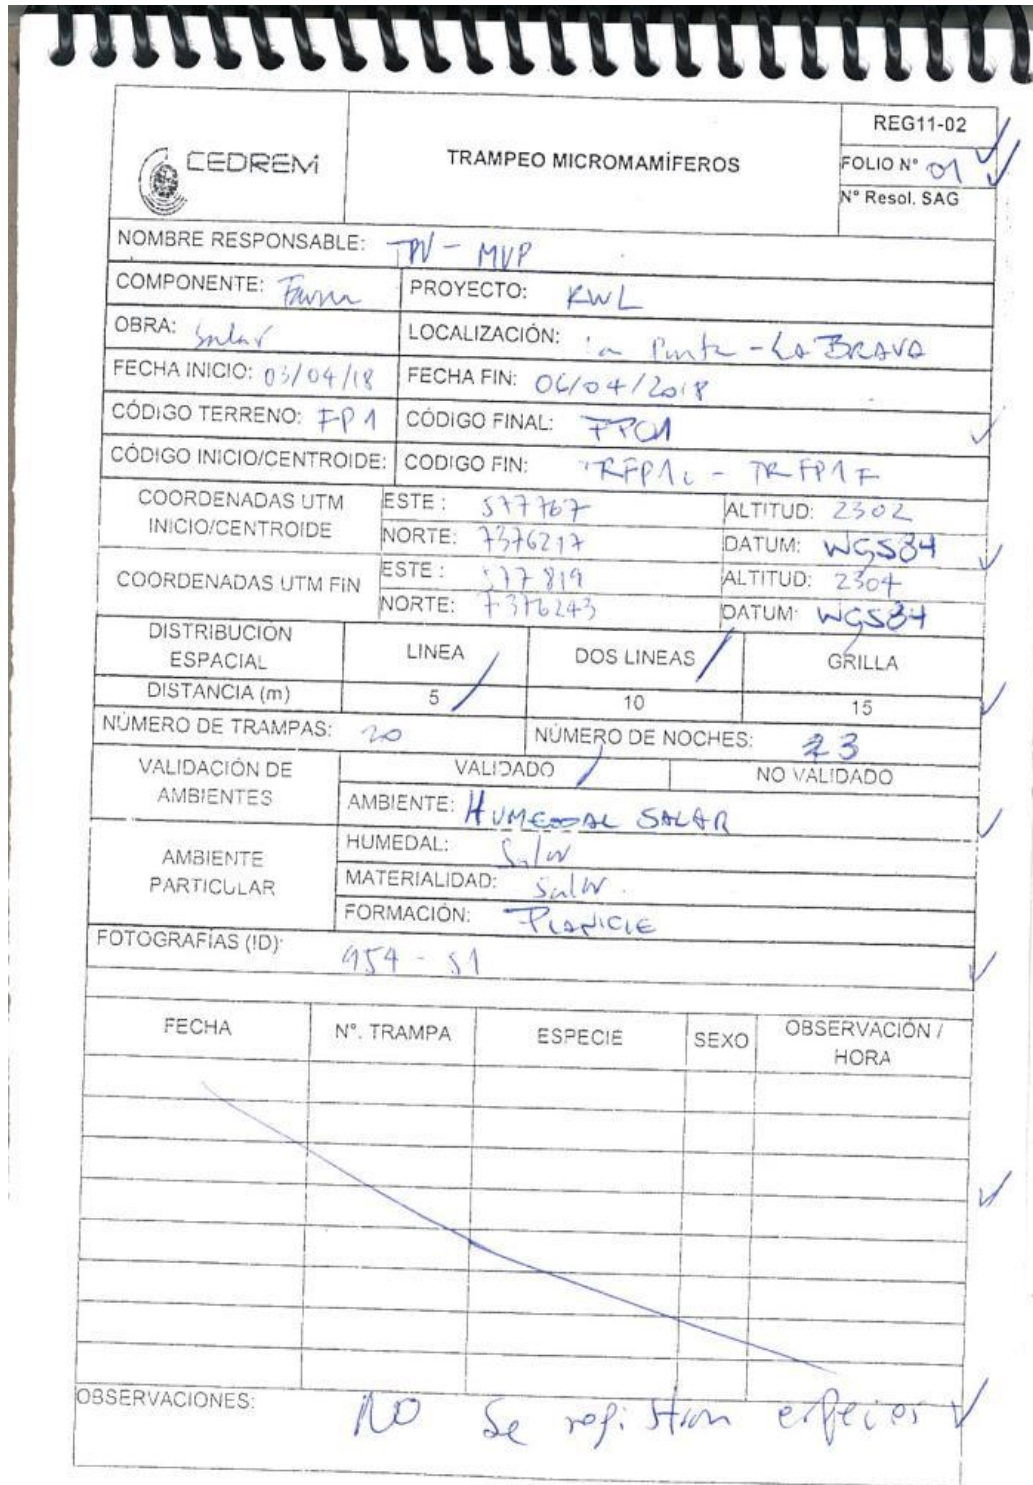 CEDREM
TRAMPEO MICROMAMÍFEROS
REG11-02
FOLIO N° 01
N° Resol. SAG
NOMBRE RESPONSABLE: - MVP
COMPONENTE: Fauna PROYECTO: KWL
OBRA: Salar LOCALIZACIÓN: La Punta - LA BRAVA
FECHA INICIO: 03/04/18 FECHA FIN: 06/04/2018
CÓDIGO TERRENO: FP1 CÓDIGO FINAL: FP01
CÓDIGO INICIO/CENTROIDE: CODIGO FIN: TRFP1i - TRFP1F
COORDENADAS UTM INICIO/CENTROIDE ESTE: 577767 ALTITUD: 2302
NORTE: 7376217 DATUM: WGS84
COORDENADAS UTM FIN ESTE: 577819 ALTITUD: 2304
NORTE: 7376243 DATUM: WGS84
DISTRIBUCIÓN ESPACIAL LINEA DOS LINEAS GRILLA
DISTANCIA (m) 5 10 15
NÚMERO DE TRAMPAS: 20 NÚMERO DE NOCHES: 3
VALIDACIÓN DE AMBIENTES VALIDADO NO VALIDADO
AMBIENTE: HUMEDAL SALAR
AMBIENTE PARTICULAR HUMEDAL: Salar
MATERIALIDAD: Salar
FORMACIÓN: PLANICIE
FOTOGRAFÍAS (ID): 954 - 51
FECHA N°. TRAMPA ESPECIE SEXO OBSERVACIÓN / HORA
OBSERVACIONES: NO Se registran especies